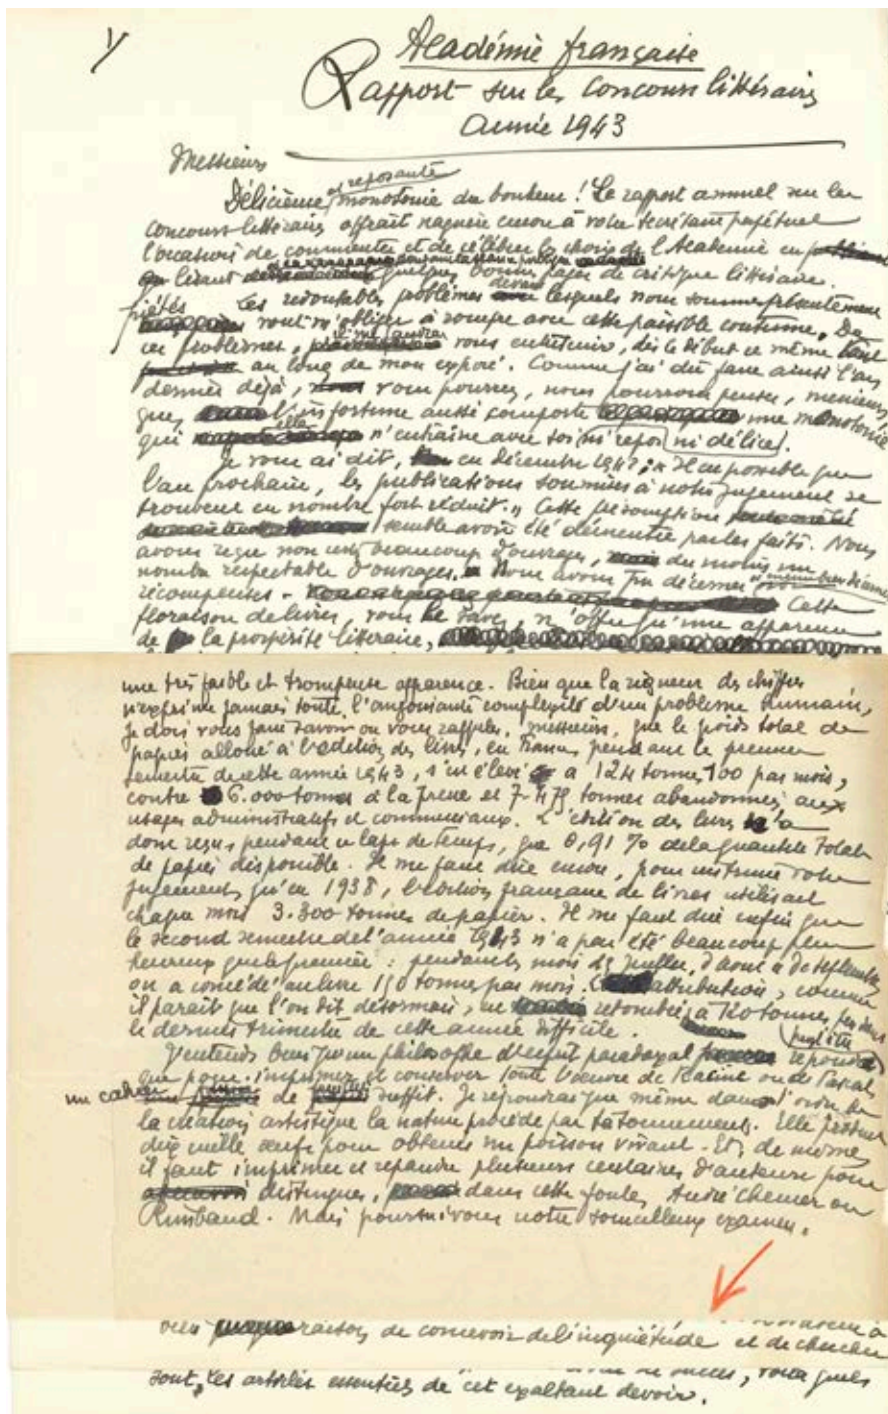 1/
Académie française
Rapport sur les concours littéraires
année 1943
Messieurs
et reposante
Délicieuse monotonie du bonheur ! Le rapport annuel sur les
concours littéraires offrait naguère encore à votre secrétaire perpétuel
l'occasion de commenter et de célébrer les choix de l'Académie en
lisant quelques bonnes pages de critique littéraire.
devant
Les redoutables problèmes lesquels nous sommes présentement
jetés vont m'obliger à rompre avec cette paisible coutume. De
il me faudra
ces problèmes, vous entretenir, dès le début et même tout
au long de mon exposé. Comme j'ai dû faire ainsi l'an
dernier déjà, vous pourrez, nous pourrons penser, messieurs,
que l'infortune aussi comporte une monotonie
qui n'entraîne avec soi ni repos ni délice.
Je vous ai dit, en décembre 1942 : « Il est possible que
l'an prochain, les publications soumises à notre jugement se
trouvent en nombre fort réduit. » Cette présomption
semble avoir été démentie par les faits. Nous
avons reçu non certes beaucoup d'ouvrages, du moins un
nombre respectable d'ouvrages. Nous avons pu décerner
récompenses. Cette
floraison de livres, vous le savez, n'offre qu'une apparence
de la prospérité littéraire,
une très faible et trompeuse apparence. Bien que la rigueur des chiffres
n'exprime jamais toute l'angoissante complexité d'un problème humain,
je dois vous faire savoir ou vous rappeler, messieurs, que le poids total de
papier alloué à l'édition des livres, en France, pendant le premier
semestre de cette année 1943, s'est élevé à 124 tonnes 100 par mois,
contre 6.000 tonnes à la presse et 7.479 tonnes abandonnées aux
usages administratifs et commerciaux. L'édition des livres n'a
donc reçu, pendant ce laps de temps, que 0,91 % de la quantité totale
de papier disponible. Il me faut dire encore, pour instruire votre
jugement, qu'en 1938, l'édition française de livres utilisait
chaque mois 3.300 tonnes de papier. Il me faut dire enfin que
le second semestre de l'année 1943 n'a pas été beaucoup plus
heureux que le premier : pendant les mois de juillet, d'août et de septembre,
on a concédé au livre 150 tonnes par mois. attribution, comme
il paraît que l'on dit désormais, est retombée à 120 tonnes
le dernier trimestre de cette année difficile.
J'entends bien qu'un philosophe d'esprit paradoxal répondre
que pour imprimer et conserver toute l'œuvre de Racine ou de Pascal
un cahier de suffit. Je répondrai que même dans l'ordre de
la création artistique la nature procède par tâtonnements. Elle produit
dix mille œufs pour obtenir un poisson vivant. Et, de même,
il faut imprimer et répandre plusieurs centaines d'auteurs pour
distinguer, dans cette foule, André Chénier ou
Rimbaud. Mais poursuivons notre sourcilleux examen.
raisons de concevoir de l'inquiétude et de chercher
sont, les articles essentiels de cet exaltant devoir.